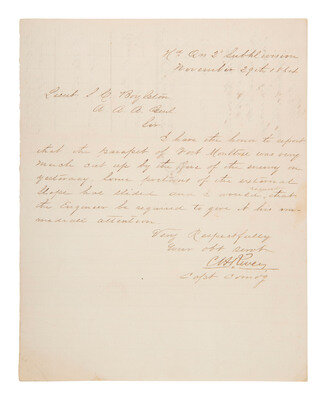 Hd Qrs 2d Subdivision
November 29th 1864
Lieut S. C. Boylston
A. A. A. Genl
Sir
I have the honor to report
that the parapet of Fort Moultrie was very
much cut up by the fire of the enemy on
yesterday. Some portions of the external
slope had slided down
I would
that
the Engineer be required to give it his im-
mediate attention
Very Respectfully
your obt servt
Capt Comdg